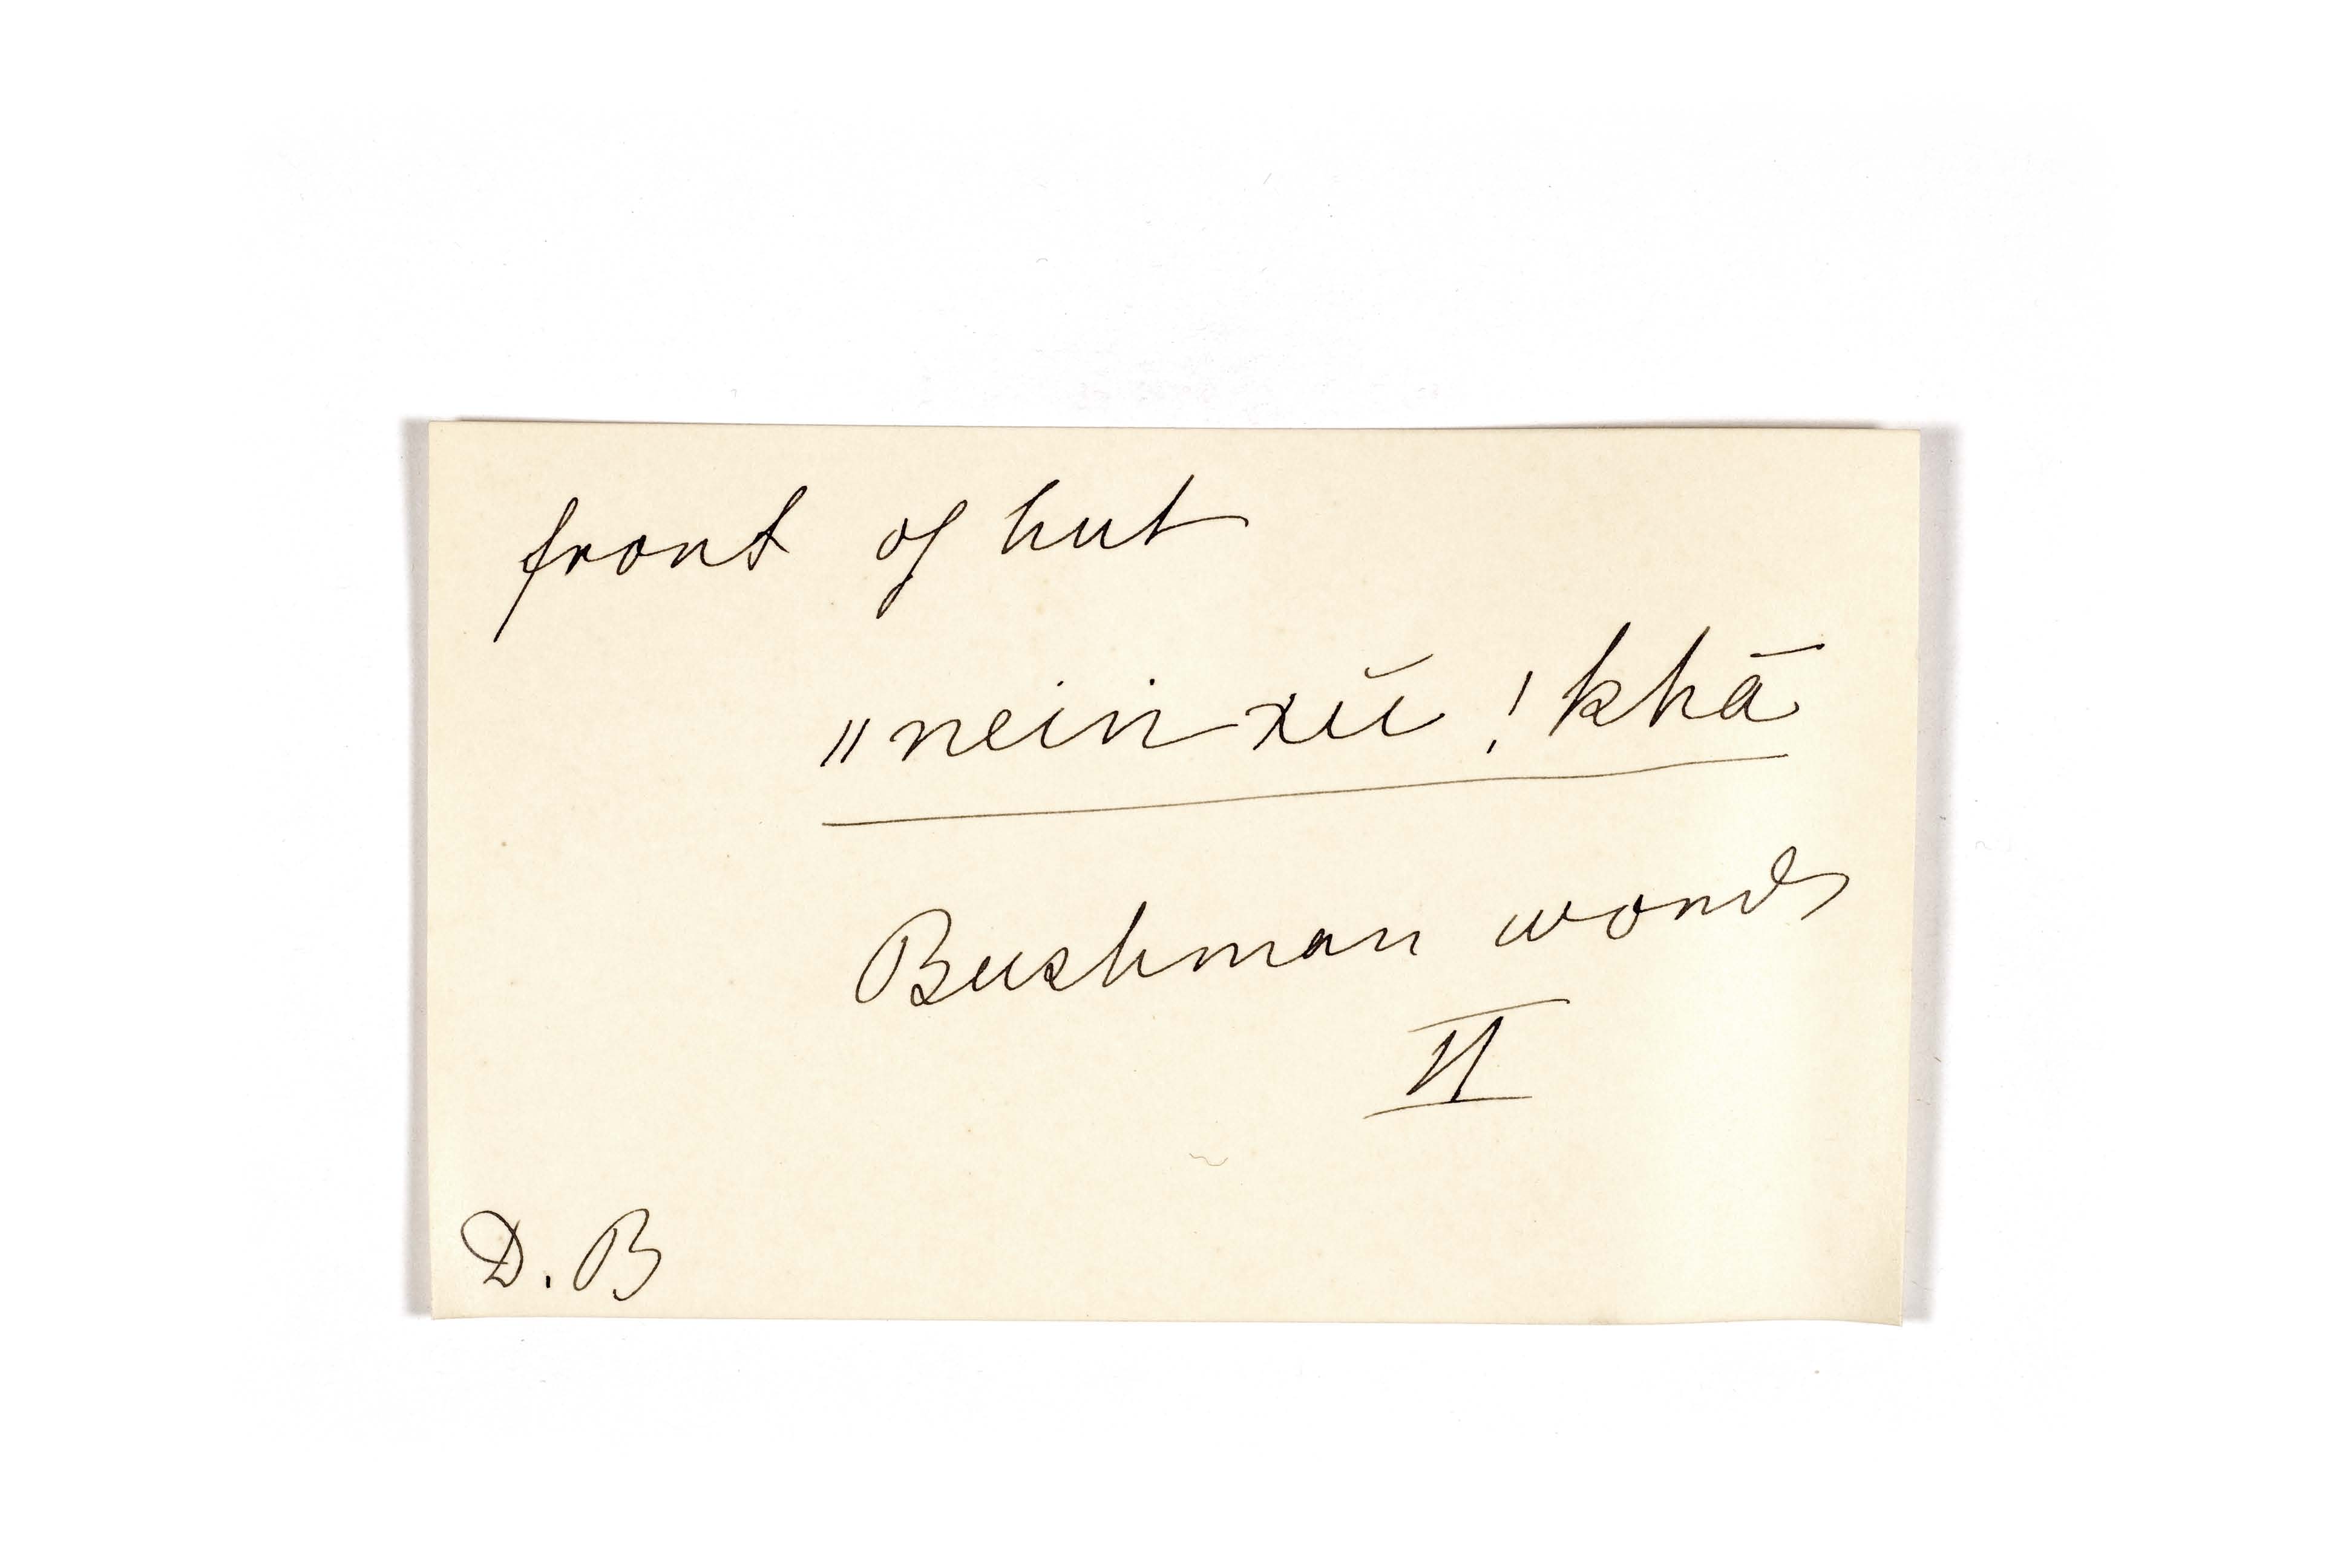 front of hut
ǁnein xū ! khā
Bushman words
II
D. B